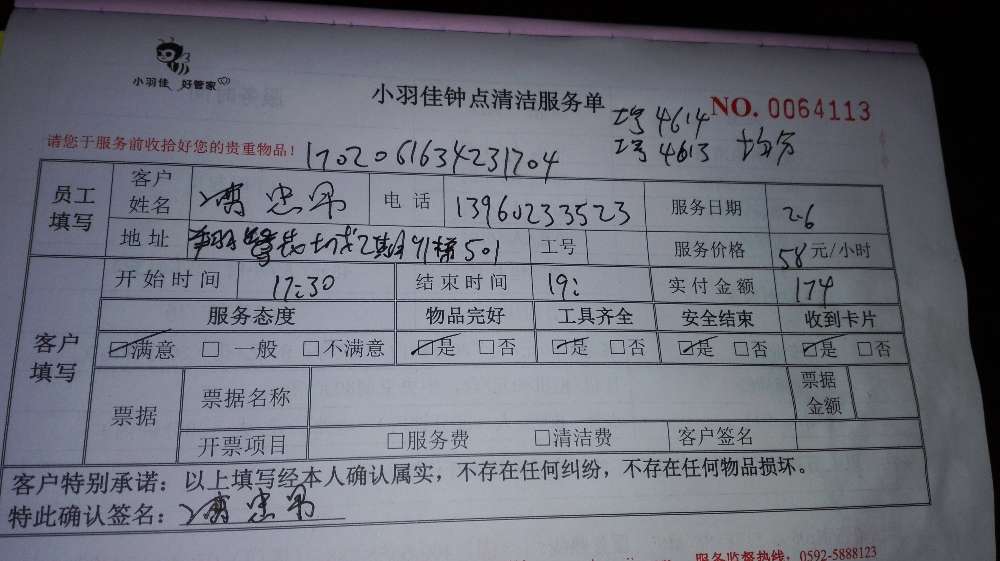 小羽佳 好管家
小羽佳钟点清洁服务单
NO. 0064113
工号 4614
请您于服务前收拾好您的贵重物品！
1702061634231704
工号 4613 均分
员工填写 客户姓名 电话 13960233523 服务日期 2.6
地址 2期91梯501 工号 服务价格 58元/小时
客户填写 开始时间 17:30 结束时间 19: 实付金额 174
服务态度 物品完好 工具齐全 安全结束 收到卡片
☑满意 □一般 □不满意 ☑是 □否 ☑是 □否 ☑是 □否 ☑是 □否
票据 票据名称 票据金额
开票项目 □服务费 □清洁费 客户签名
客户特别承诺：以上填写经本人确认属实，不存在任何纠纷，不存在任何物品损坏。
特此确认签名：
服务监督热线：0592-5888123